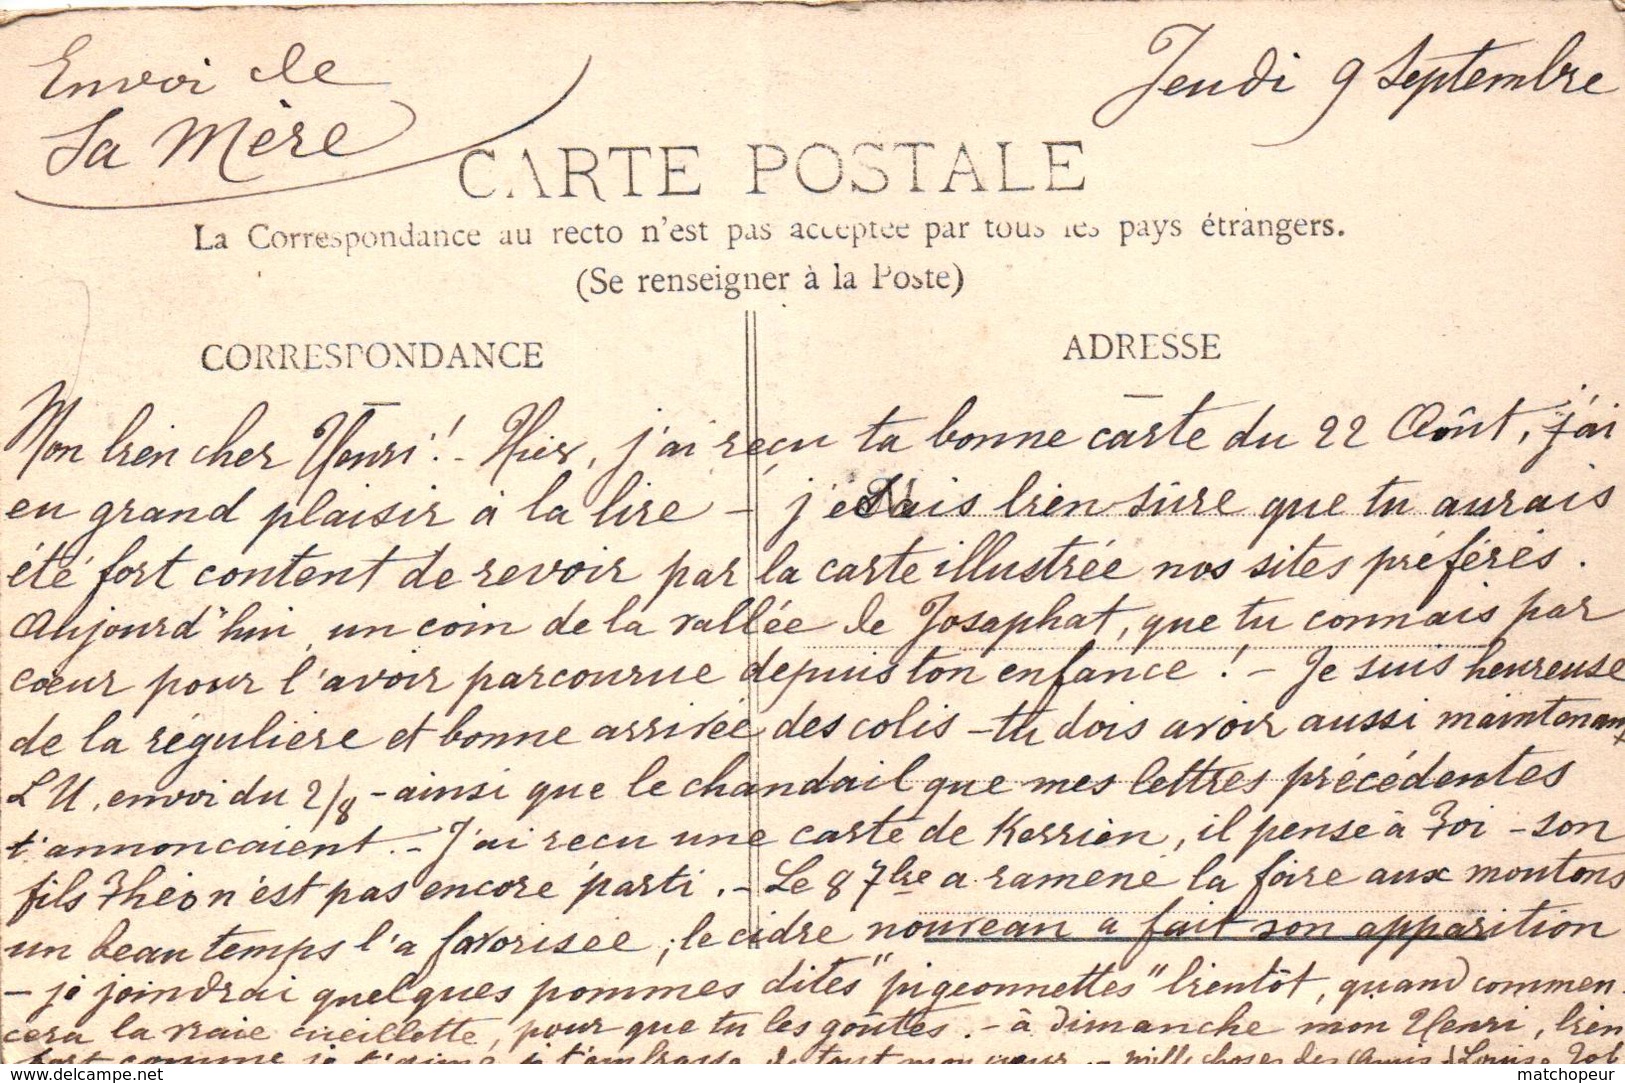 Envoi de
Sa Mère
Jeudi 9 Septembre
CARTE POSTALE
La Correspondance au recto n'est pas acceptée par tous les pays étrangers.
(Se renseigner à la Poste)
CORRESPONDANCE
ADRESSE
Mon bien cher Henri! - Hier, j'ai reçu ta bonne carte du 22 Août, j'ai
eu grand plaisir à la lire - j'étais bien sûre que tu aurais
été fort content de revoir par la carte illustrée nos sites préférés.
Aujourd'hui, un coin de la vallée de Josaphat, que tu connais par
cœur pour l'avoir parcourue depuis ton enfance! - Je suis heureuse
de la régulière et bonne arrivée des colis - tu dois avoir aussi maintenant
LU, envoi du 2/8 - ainsi que le chandail que mes lettres précédentes
t'annoncaient. - J'ai recu une carte de Kerrien, il pense à Toi - son
fils Théo n'est pas encore parti. - Le 8 7bre a ramené la foire aux moutons
un beau temps l'a favorisée; le cidre nouveau a fait son apparition
- je joindrai quelques pommes dites "pigeonnettes" bientôt, quand commen-
cera la vraie cueillette, pour que tu les goûtes. - à Dimanche mon Henri, bien
fort comme je t'aime je t'embrasse de tout mon cœur. - mille choses des Amis
www.delcampe.net
matchopeur